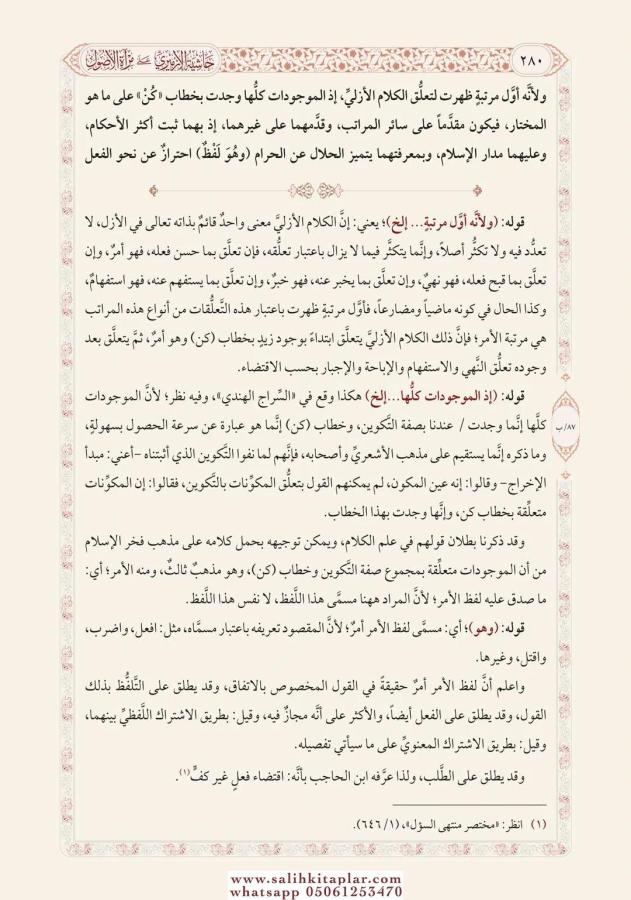 ٢٨٠
حاشية الإزميري على مرآة الأصول
ولأنَّه أوَّل مرتبةٍ ظهرت لتعلُّق الكلام الأزليِّ، إذ الموجودات كلُّها وجدت بخطاب «كُنْ» على ما هو
المختار، فيكون مقدَّماً على سائر المراتب، وقدَّمهما على غيرهما، إذ بهما ثبت أكثر الأحكام،
وعليهما مدار الإسلام، وبمعرفتهما يتميز الحلال عن الحرام (وهُوَ لَفْظٌ) احترازٌ عن نحو الفعل
قوله: (ولأنَّه أوَّل مرتبةٍ... إلخ)؛ يعني: إنَّ الكلام الأزليَّ معنى واحدٌ قائمٌ بذاته تعالى في الأزل، لا
تعدُّد فيه ولا تكثُّر أصلاً، وإنَّما يتكثَّر فيما لا يزال باعتبار تعلُّقه، فإن تعلَّق بما حسن فعله، فهو أمرٌ، وإن
تعلَّق بما قبح فعله، فهو نهيٌ، وإن تعلَّق بما يخبر عنه، فهو خبرٌ، وإن تعلَّق بما يستفهم عنه، فهو استفهامٌ،
وكذا الحال في كونه ماضياً ومضارعاً، فأوَّل مرتبةٍ ظهرت باعتبار هذه التَّعلُّقات من أنواع هذه المراتب
هي مرتبة الأمر؛ فإنَّ ذلك الكلام الأزليَّ يتعلَّق ابتداءً بوجود زيدٍ بخطاب (كن) وهو أمرٌ، ثمَّ يتعلَّق بعد
وجوده تعلُّق النَّهي والاستفهام والإباحة والإجبار بحسب الاقتضاء.
قوله: (إذ الموجودات كلُّها...إلخ) هكذا وقع في «السِّراج الهندي»، وفيه نظر؛ لأنَّ الموجودات
كلَّها إنَّما وجدت / عندنا بصفة التَّكوين، وخطاب (كن) إنَّما هو عبارة عن سرعة الحصول بسهولةٍ،
٨٧/ ب
وما ذكره إنَّما يستقيم على مذهب الأشعريِّ وأصحابه، فإنَّهم لما نفوا التَّكوين الذي أثبتناه -أعني: مبدأ
الإخراج- وقالوا: إنه عين المكون، لم يمكنهم القول بتعلُّق المكوِّنات بالتَّكوين، فقالوا: إن المكوِّنات
متعلِّقة بخطاب كن، وإنَّها وجدت بهذا الخطاب.
وقد ذكرنا بطلان قولهم في علم الكلام، ويمكن توجيهه بحمل كلامه على مذهب فخر الإسلام
من أن الموجودات متعلِّقة بمجموع صفة التَّكوين وخطاب (كن)، وهو مذهبٌ ثالثٌ، ومنه الأمر؛ أي:
ما صدق عليه لفظ الأمر؛ لأنَّ المراد ههنا مسمَّى هذا اللَّفظ، لا نفس هذا اللَّفظ.
قوله: (وهو)؛ أي: مسمَّى لفظ الأمر أمرٌ؛ لأنَّ المقصود تعريفه باعتبار مسمَّاه، مثل: افعل، واضرب،
واقتل، وغيرها.
واعلم أنَّ لفظ الأمر أمرٌ حقيقةً في القول المخصوص بالاتفاق، وقد يطلق على التَّلفُّظ بذلك
القول، وقد يطلق على الفعل أيضاً، والأكثر على أنَّه مجازٌ فيه، وقيل: بطريق الاشتراك اللَّفظيِّ بينهما،
وقيل: بطريق الاشتراك المعنويِّ على ما سيأتي تفصيله.
وقد يطلق على الطَّلب، ولذا عرَّفه ابن الحاجب بأنَّه: اقتضاء فعلٍ غير كفٍّ(١).
(١) انظر: «مختصر منتهى السؤل»، (١/ ٦٤٦).
www.salihkitaplar.com
whatsapp 05061253470